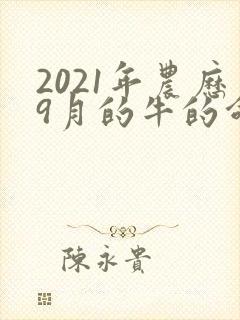 2021年農歷
9月的牛的命
陳永貴